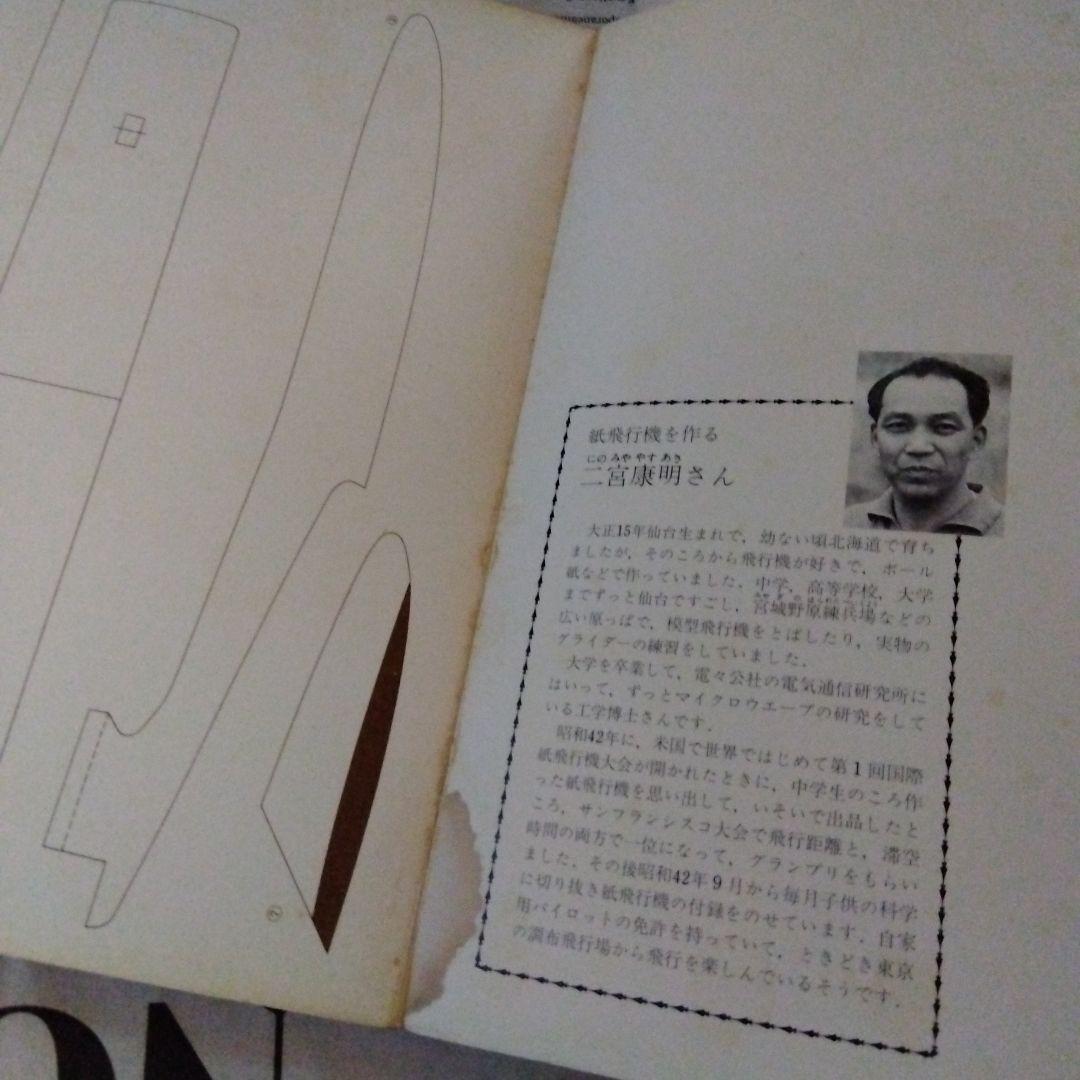 紙飛行機を作る
にのみややすあき
二宮康明さん
大正15年仙台生まれで，幼ない頃北海道で育ち
ましたが，そのころから飛行機が好きで，ボール
紙などで作っていました．中学，高等学校，大学
までずっと仙台ですごし，宮城野原練兵場などの
広い原っぱで，模型飛行機をとばしたり，実物の
グライダーの練習をしていました．
大学を卒業して，電々公社の電気通信研究所に
はいって，ずっとマイクロウエーブの研究をして
いる工学博士さんです．
昭和42年に，米国で世界ではじめて第1回国際
紙飛行機大会が開かれたときに，中学生のころ作
った紙飛行機を思い出して，いそいで出品したと
ころ，サンフランシスコ大会で飛行距離と，滞空
時間の両方で一位になって，グランプリをもらい
ました．その後昭和42年9月から毎月子供の科学
に切り抜き紙飛行機の付録をのせています．自家
用パイロットの免許を持っていて，ときどき東京
の調布飛行場から飛行を楽しんでいるそうです．
ON